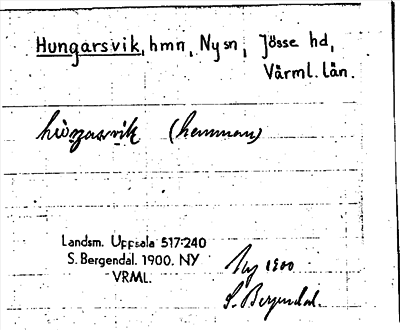 Hungarsvik, hmn, Ny sn, Jösse hd,
Värml. län.
(hemman)
Landsm. Uppsala 517:240
S. Bergendal. 1900. NY
VRML.
Ny 1900
S. Bergendal.